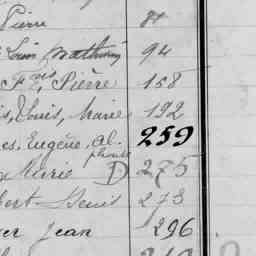 Pierre 81
Louis Mathurin 94
Fçois, Pierre 158
is, Louis, Marie 192
es, Eugène, al- 259
phonse
Marie D 275
bert-Denis 273
er Jean 296